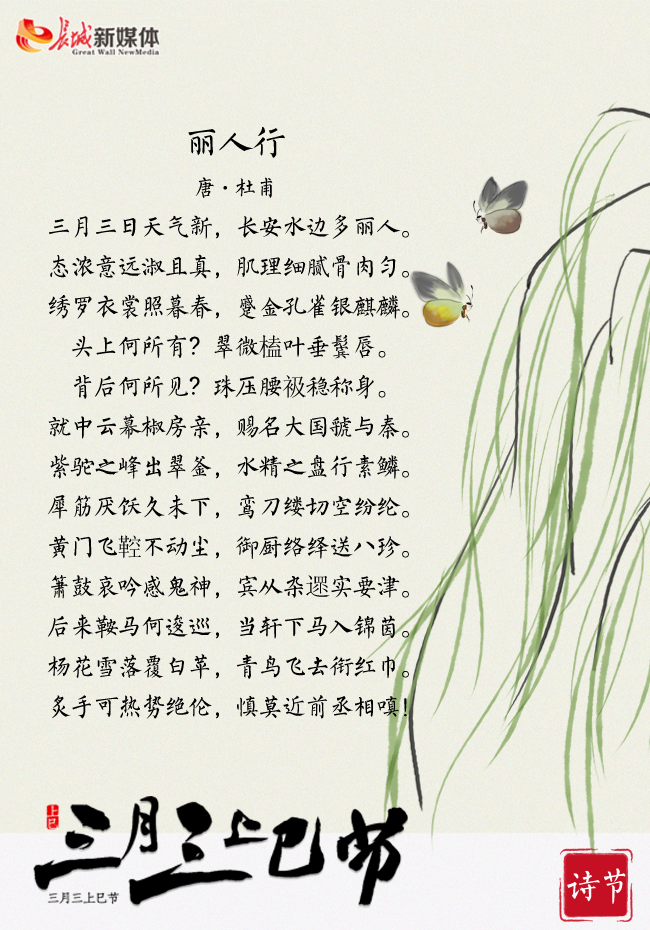 长城新媒体
Great Wall NewMedia
丽人行
唐·杜甫
三月三日天气新，长安水边多丽人。
态浓意远淑且真，肌理细腻骨肉匀。
绣罗衣裳照暮春，蹙金孔雀银麒麟。
头上何所有？翠微㔩叶垂鬓唇。
背后何所见？珠压腰衱稳称身。
就中云幕椒房亲，赐名大国虢与秦。
紫驼之峰出翠釜，水精之盘行素鳞。
犀筋厌饫久未下，鸾刀缕切空纷纶。
黄门飞鞚不动尘，御厨络绎送八珍。
箫鼓哀吟感鬼神，宾从杂遝实要津。
后来鞍马何逡巡，当轩下马入锦茵。
杨花雪落覆白草，青鸟飞去衔红巾。
炙手可热势绝伦，慎莫近前丞相嗔！
上巳
三月三上巳节
三月三上巳节
诗节